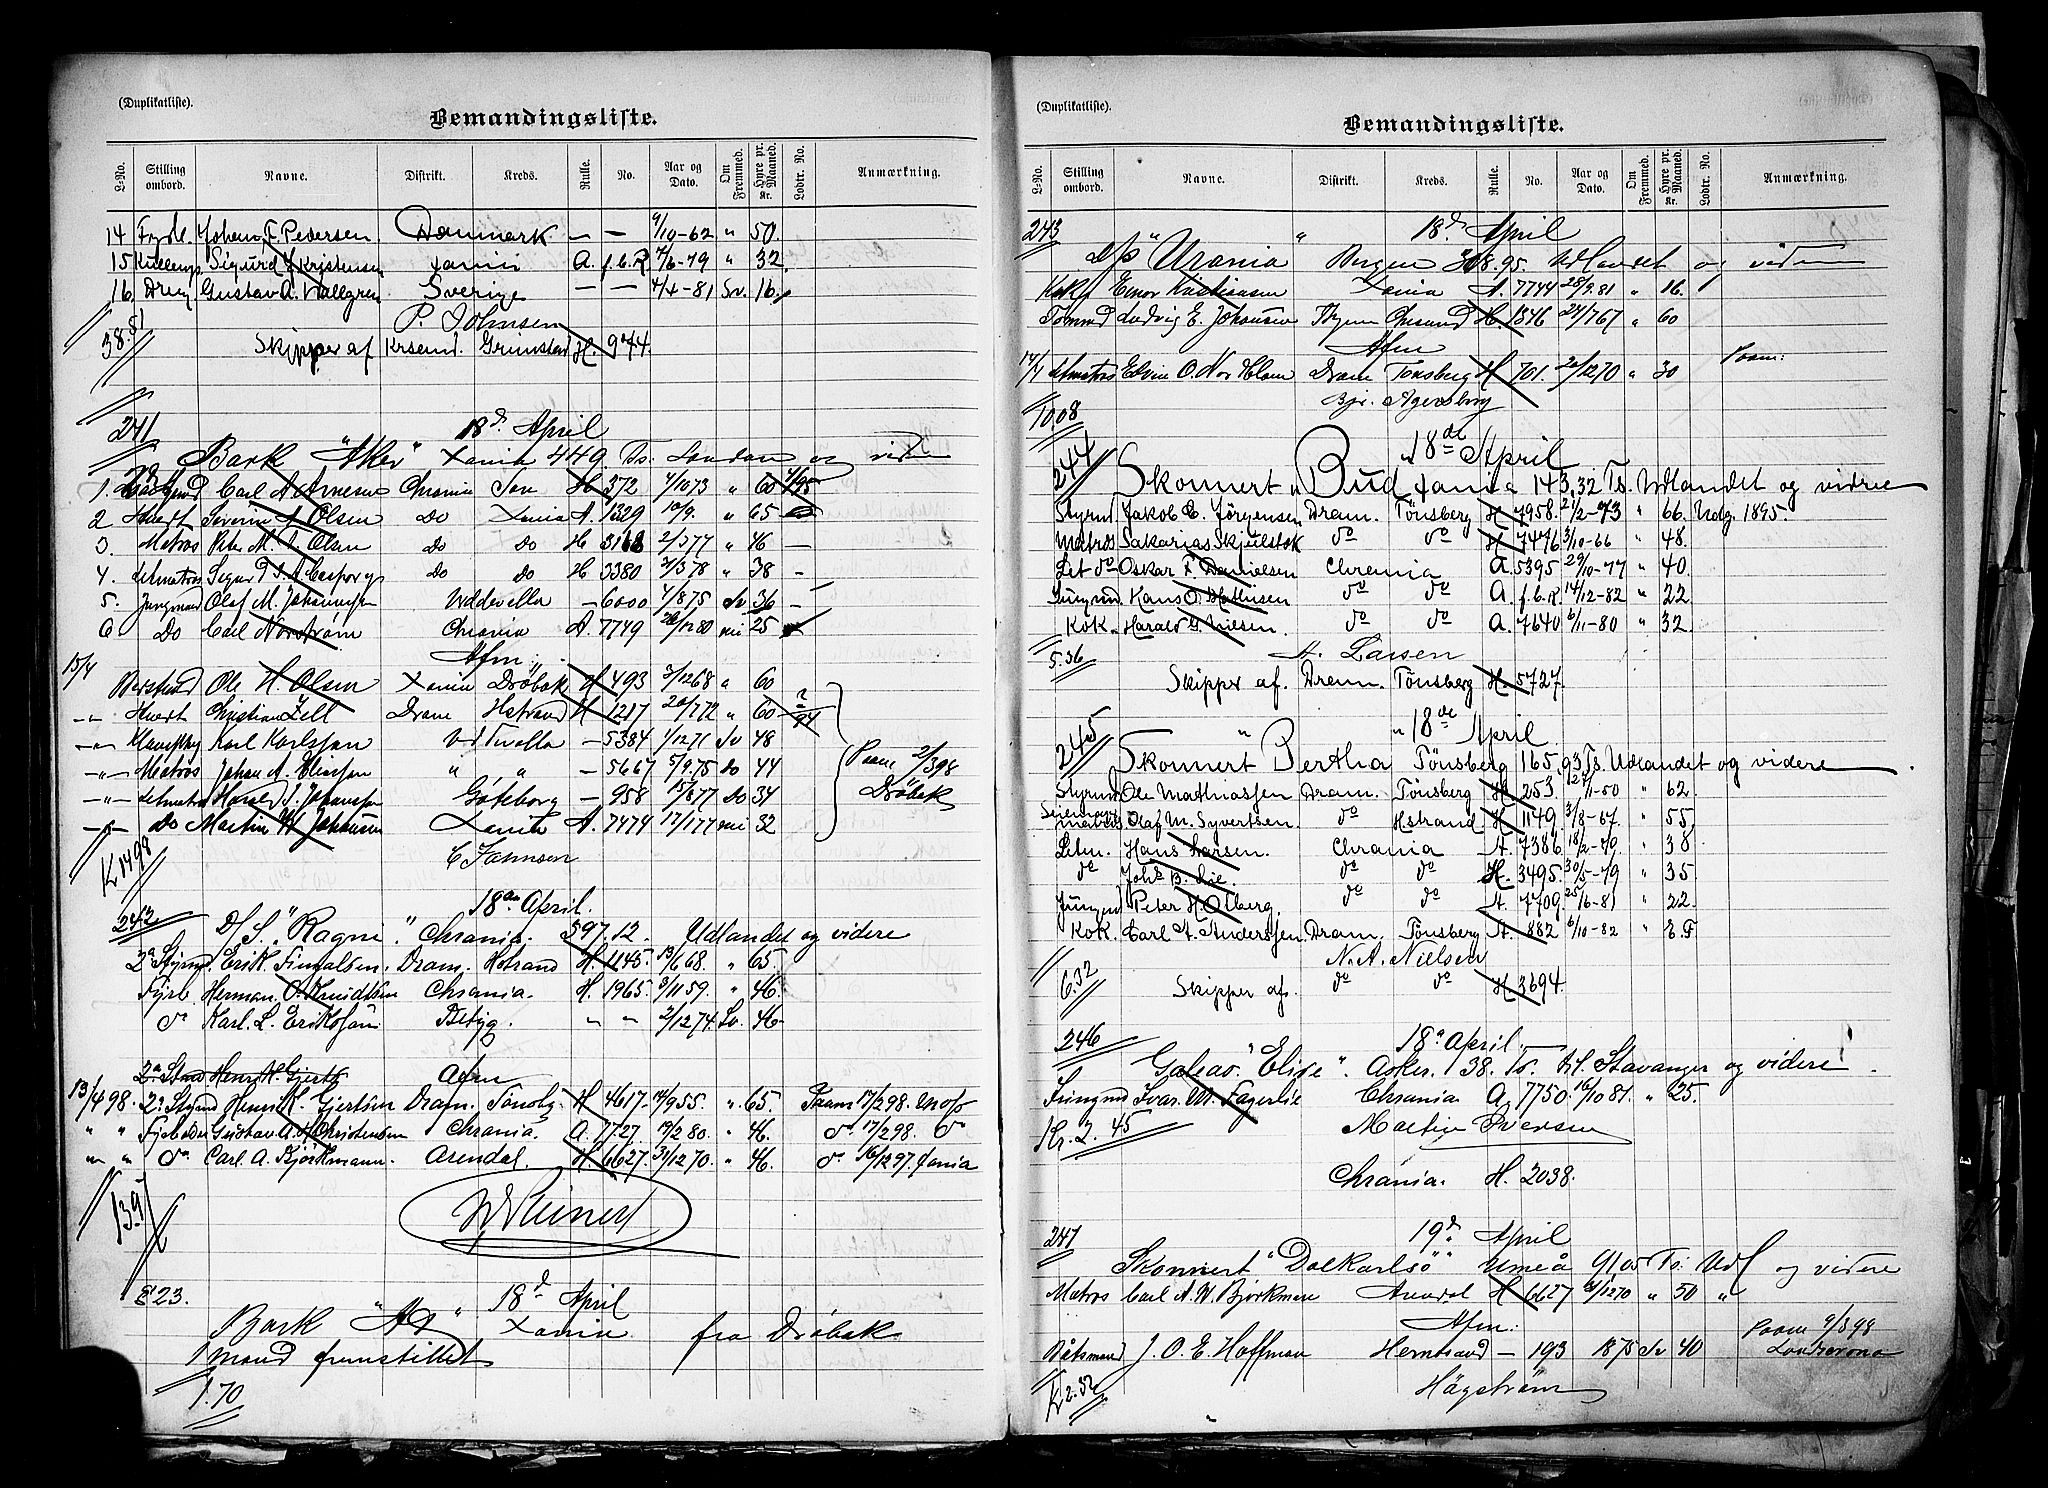 (Duplikatliste).
Bemandingsliste.
L-No. Stilling ombord. Navne. Distrikt. Kreds. Rulle. No. Aar og Dato. Om Fremmed. Hyre pr. Maaned. Kr. Lodtr. No. Anmærkning.
14 Fyrb. Johan F. Pedersen Danmark — — 9/10-62 " 50.
15 Kullemp. Sigurd Kristensen Xania A. f.b.R. 7/6-79 " 32.
16. Dreng Gustav A. Vallgren Sverige — — 4/4-81 Sv. 16
P. Johnsen
38.51
Skipper af Krsand. Grimstad H. 944.
241 18d April
Bark "Aker" Xania 449 Ts. London og videre
1. Carl A. Arnesen Chrania Son H 372 4/1073 " 60
2 Severin A. Olsen Do Xania A. 1329 " 65
3. Matros Peter M. Olsen do do H 3168 2/377 " 46 —
4. Letmatros Sigurd do do H 3380 2/378 " 38 —
5. Jungmand Olaf M. Johannesen Uddevalla — 6000 4/875 Sv 36 —
6 Do Carl Norstrøm Chrania A. 7749 25
Afm:
15/4 Ole H. Olsen Xania Drøbak H 493 3/1268 " 60
—"— Christian Zell Dram Hstrand H 1217 20/772 " 60
—"— Karl Karlsson Uddevalla — 5384 1/1271 Sv 48
—"— Matros Johan A. " " — 5667 5/9.75 do 44 Paam 2/398
—"— Letmatros Harald J. Johansson Göteborg — 958 15/877 Do 34 Drøbak
—"— do Martin W. Johansen Xania A. 7474 17/177 32
Kr 14.98
C Johnsen
18de April.
242 D/S. "Ragni" Chrania. 597.12. Udlandet og videre
2d Styrmd Erik Finnalsen. Dram. Hstrand H. 1145. 13/668. " 65.
Fyrb Herman. O. Knudtsen Chrania. H. 1965. 9/1159. " 46.
do Karl. L. Eriksson Betyg. " " 2/1274. Sv. 46.
2d Stmd Henrik H. Gjerts Afm
13/4 98. 2d Styrmd Henrik H. Gjertsen Dram. Tønsbg. H. 4617. 14/955. " 65. Paam 17/298. Moss
" " Fyrbøder Gustav A. Christensen Chrania. A. 7727. 19/280. " 46. do 17/298. do
" " do Carl. A. Björkmann. Arendal. H. 6627. 31/1270. " 46. do 16/1297. Xania
139
§ 23. 18d April
Bark "A" Xania. fra Drøbak
1 mand fremstillet
1.70
(Duplikatliste).
Bemandingsliste.
L-No. Stilling ombord. Navne. Distrikt. Kreds. Rulle. No. Aar og Dato. Om Fremmed. Hyre pr. Maaned. Kr. Lodtr. No. Anmærkning.
243 18d April
D/S "Urania" Bergen 308.95. Udlandet og videre
Kok Einar Kristiansen Xania A. 7744 28/9.81 " 16.
Tømmd Ludvig E. Johansen H. 1846 24/767 " 60
Afm
14/4 Letmatros Edvin O. Dram Tønsberg H 701. 20/1270 " 30 Paam:
Bjr. Agersborg
10.08
244 18de April
Skonnert "Bud" Xania 143,32 Ts. Udlandet og videre
Styrmd Jakob E. Jörgensen Dram. Tönsberg H 7958. 21/2-73 " 66. Udg. 1895.
Matros Sakarias Skjulstok do do H 7476 3/10-66 " 48.
Let do Oskar F. Danielsen Chrania A. 5395 29/10-77 " 40
Jungmd Hans O. Mathisen do do A. f.b.R. 14/12-82 " 22
Kok. Harald G. Nilsen. do do A. 7640 6/11-80 " 32
5.36
A. Larsen
Skipper af. Dram. Tönsberg H. 5727.
245 18de April
Skonnert "Bertha" Tönsberg 165,93 Ts. Udlandet og videre
Styrmd Ole Mathiassen Dram. Tönsberg H 253. 12/11-50 " 62.
Seilmager Matros Olaf M. Syvertsen. do Hstrand H 1149 3/8-67 " 55.
Letm. Hans Larsen. Chrania A. 7386 18/2-79 " 38
do Johs B. Lie. do do H. 3495. 30/5-79 " 35
Jungmd Peter H. Olberg. do do A. 7709. 25/6-81 " 22.
Kok. Carl A. Anderssen. Dram. Tönsberg A. 882 6/10-82 " E.F
N. A. Nielsen
6.32
Skipper af. do do H 3694.
246 18d April.
Galeas "Elise". Asker. 38. Ts. til Stavanger og videre.
Jungmd Ivar. M. Fagerlie Chrania A. 7750. 16/1081. " 25.
Kr. 2.45
Martin Iversen
Chrania. H. 2038.
247 19d April
Skonnert "Dalkarlsö" Umeå 91.05 Ts. Udl og videre
Matros Carl A. W. Bjørkman Arendal H 6627 31/1270 " 50 "
Afm: Paam 9/398
Båtsmand J. O. E. Hoffman Hernösand — 193 1875 Sv 40 Landscrona
K 2.52
Hägström